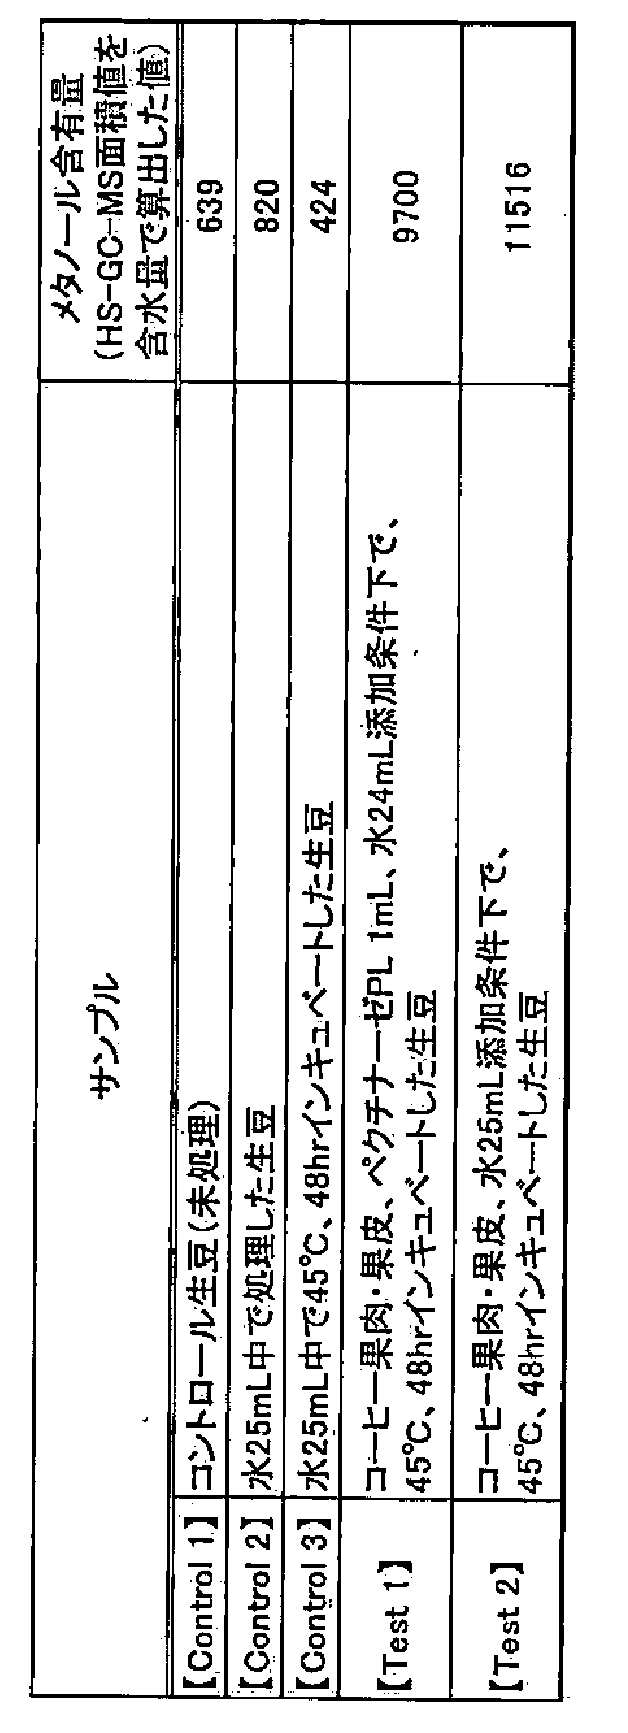 サンプル
メタノール含有量
(HS-GC-MS面積値を
含水量で算出した値)
【Control 1】 コントロール生豆(未処理) 639
【Control 2】 水25mL中で処理した生豆 820
【Control 3】 水25mL中で45℃、48hrインキュベートした生豆 424
【Test 1】 コーヒー果肉・果皮、ペクチナーゼPL 1mL、水24mL添加条件下で、
45℃、48hrインキュベートした生豆 9700
【Test 2】 コーヒー果肉・果皮、水25mL添加条件下で、
45℃、48hrインキュベートした生豆 11516